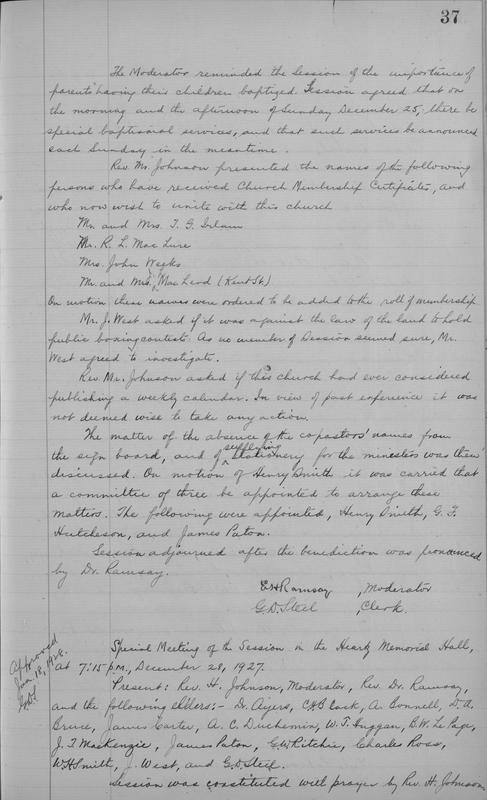 37
The Moderator reminded the Session of the importance of
parents having their children baptized. Session agreed that on
the morning and the afternoon of Sunday December 25, there be
special baptismal services, and that such services be announced
each Sunday in the meantime.
Rev. Mr. Johnson presented the names of the following
persons who have received Church Membership Certificates, and
who now wish to unite with this church
Mr. and Mrs. T. G. Ives
Mr. R. L. MacLure
Mrs. John Weeks
Mr. and Mrs. MacLeod (Kent St.)
On motion these names were ordered to be added to the roll of membership
Mr. J. West asked if it was against the law of the land to hold
public boxing contests. As no member of Session seemed sure, Mr.
West agreed to investigate.
Rev. Mr. Johnson asked if this church had ever considered
publishing a weekly calendar. In view of past experience it was
not deemed wise to take any action.
The matter of the absence of the copastors' names from
the sign board, and of supplying stationery for the ministers was then
discussed. On motion of Henry Smith it was carried that
a committee of three be appointed to arrange these
matters. The following were appointed, Henry Smith, G. F.
Hutcheson, and James Paton.
Session adjourned after the benediction was pronounced
by Dr. Ramsay.
E H Ramsay, Moderator
G. D. Steel, Clerk.
Approved
Jan. 18, 1928.
GDS
Special Meeting of the Session in the Heartz Memorial Hall,
at 7:15 p.m., December 28, 1927.
Present: Rev. H. Johnson, Moderator, Rev. Dr. Ramsay,
and the following elders:- Dr. Ayers, C H B Cook, A. Bonnell, D. A.
Bruce, James Carter, A. C. Duchemin, W. T. Huggan, B. W. LePage,
J. F. MacKenzie, James Paton, G. W. Ritchie, Charles Ross,
W. H. Smith, J. West, and G. D. Steel.
Session was constituted with prayer by Rev. H. Johnson.